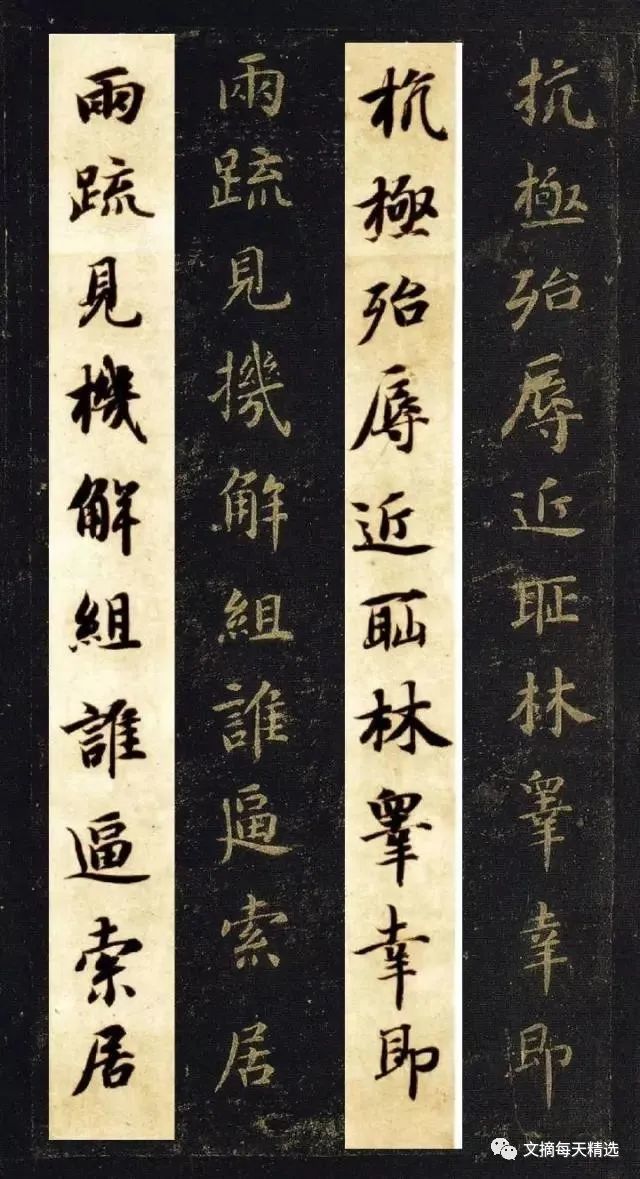 抗極殆辱近耻林睾幸即
杭極殆辱近耻林睾幸即
兩疏見機觧組誰逼索居
兩疏見機觧組誰逼索居
文摘每天精选